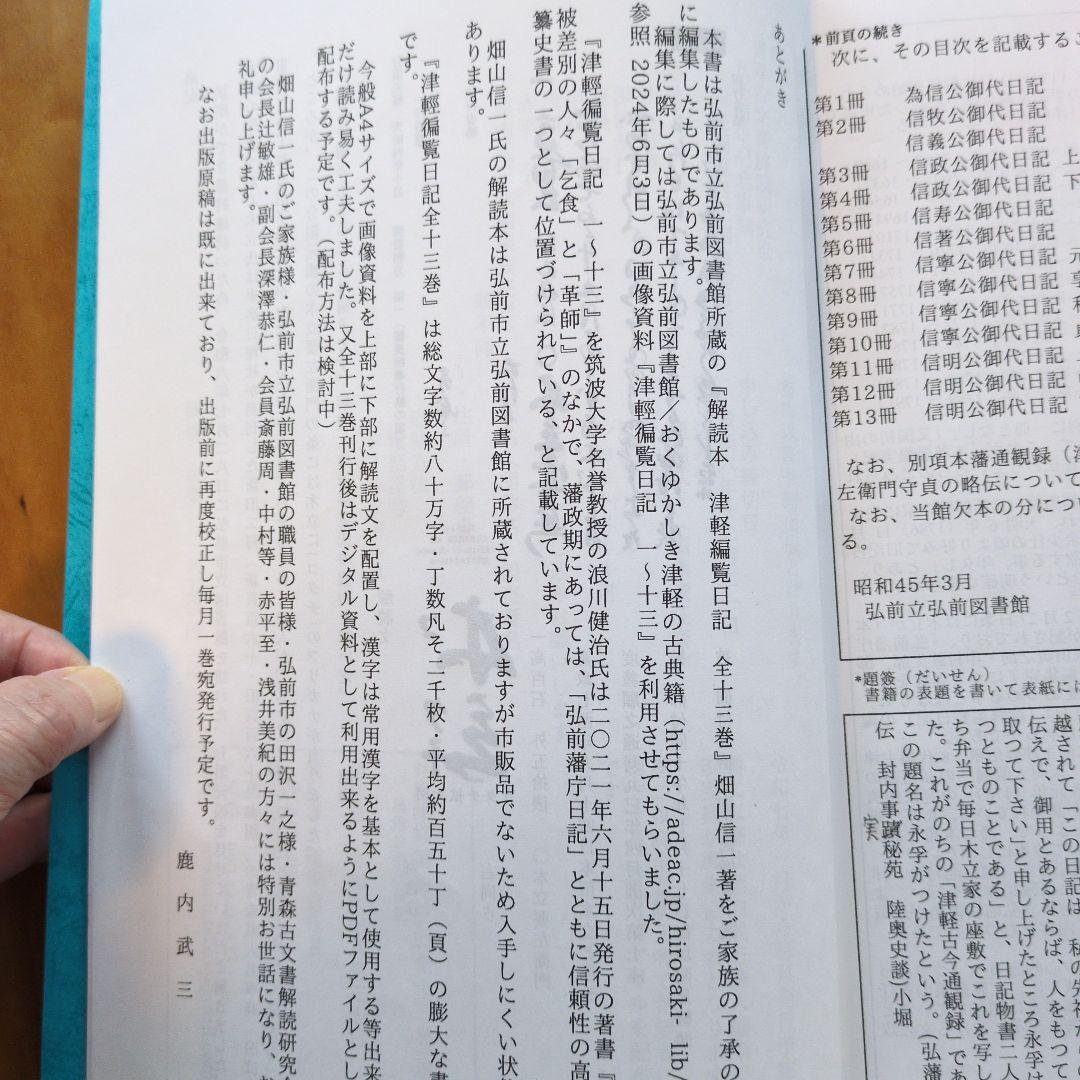 *前頁の続き
次に、その目次を記載する
第1冊　為信公御代日記
第2冊　信牧公御代日記
信義公御代日記
第3冊　信政公御代日記　上
第4冊　信政公御代日記　下
第5冊　信寿公御代日記
第6冊　信著公御代日記
第7冊　信寧公御代日記　元
第8冊　信寧公御代日記　享
第9冊　信寧公御代日記
第10冊　信寧公御代日記
第11冊　信明公御代日記
第12冊　信明公御代日記
第13冊　信明公御代日記
なお、別項本藩通観録（
左衛門守貞の略伝について
なお、当館欠本の分につ
る。
昭和45年3月
弘前立弘前図書館
*題簽（だいせん）
書籍の表題を書いて表紙に
越されて「この日記は、私の先祖
伝えで、御用とあるならば、人をもつて
取つて下さい」と申し上げたところ永孚は
つとものことである」と、日記物書二人
ち弁当で毎日木立家の座敷でこれを写し
た。これがのちの「津軽古今通観録」であ
この題名は永孚がつけたという。（弘藩
伝　封内事蹟秘苑　陸奥史談)小堀
実
あとがき
本書は弘前市立弘前図書館所蔵の『解読本　津軽編覧日記　全十三巻』畑山信一著をご家族の了承の
に編集したものであります。
編集に際しては弘前市立弘前図書館／おくゆかしき津軽の古典籍（https://adeac.jp/hirosaki- lib/
参照 2024年6月3日）の画像資料『津輕徧覧日記　一～十三』を利用させてもらいました。
『津輕徧覧日記　一～十三』を筑波大学名誉教授の浪川健治氏は二〇二一年六月十五日発行の著書『
被差別の人々「乞食」と「革師」』のなかで、藩政期にあっては、「弘前藩庁日記」とともに信頼性の高
纂史書の一つとして位置づけられている、と記載しています。
畑山信一氏の解読本は弘前市立弘前図書館に所蔵されておりますが市販品でないため入手しにくい状
あります。
『津輕徧覧日記全十三巻』は総文字数約八十万字・丁数凡そ二千枚・平均約百五十丁（頁）の膨大な
です。
今般A4サイズで画像資料を上部に下部に解読文を配置し、漢字は常用漢字を基本として使用する等出来
だけ読み易く工夫しました。又全十三巻刊行後はデジタル資料として利用出来るようにPDFファイルとし
配布する予定です。（配布方法は検討中）
畑山信一氏のご家族様・弘前市立弘前図書館の職員の皆様・弘前市の田沢一之様・青森古文書解読研究
の会長辻敏雄・副会長深澤恭仁・会員斎藤周・中村等・赤平至・浅井美紀の方々には特別お世話になり、
礼申し上げます。
なお出版原稿は既に出来ており、出版前に再度校正し毎月一巻宛発行予定です。
鹿内武三